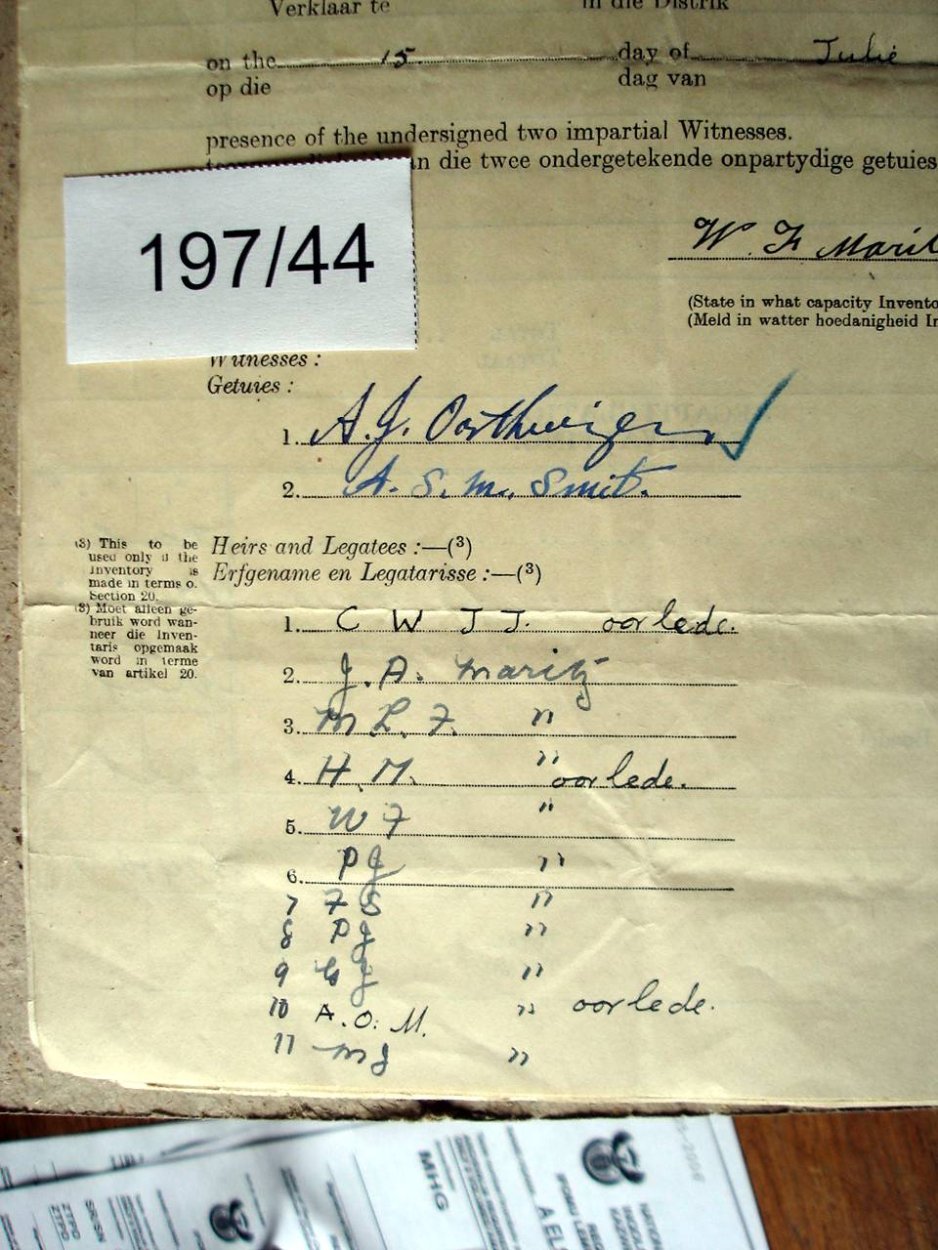 Verklaar te in die Distrik
on the 15 day of Julie
op die dag van
presence of the undersigned two impartial Witnesses.
an die twee ondergetekende onpartydige getuies
197/44
W. F. Marit
(State in what capacity Invento
(Meld in watter hoedanigheid In
Witnesses :
Getuies :
1. A. J. Oosthuizen
2. A. S. M. Smit.
(3) This to be
used only if the
Inventory is
made in terms o.
Section 20.
(3) Moet alleen ge-
bruik word wan-
neer die Inven-
taris opgemaak
word in terme
van artikel 20.
Heirs and Legatees :—(3)
Erfgename en Legatarisse :—(3)
1. C W J J. oorlede.
2. J. A. Maritz
3. M L. F. "
4. H. M. " oorlede.
5. W F "
6. P J "
7 F S "
8 P J "
9 J "
10 A. O. M. " oorlede.
11 M J "
MHG